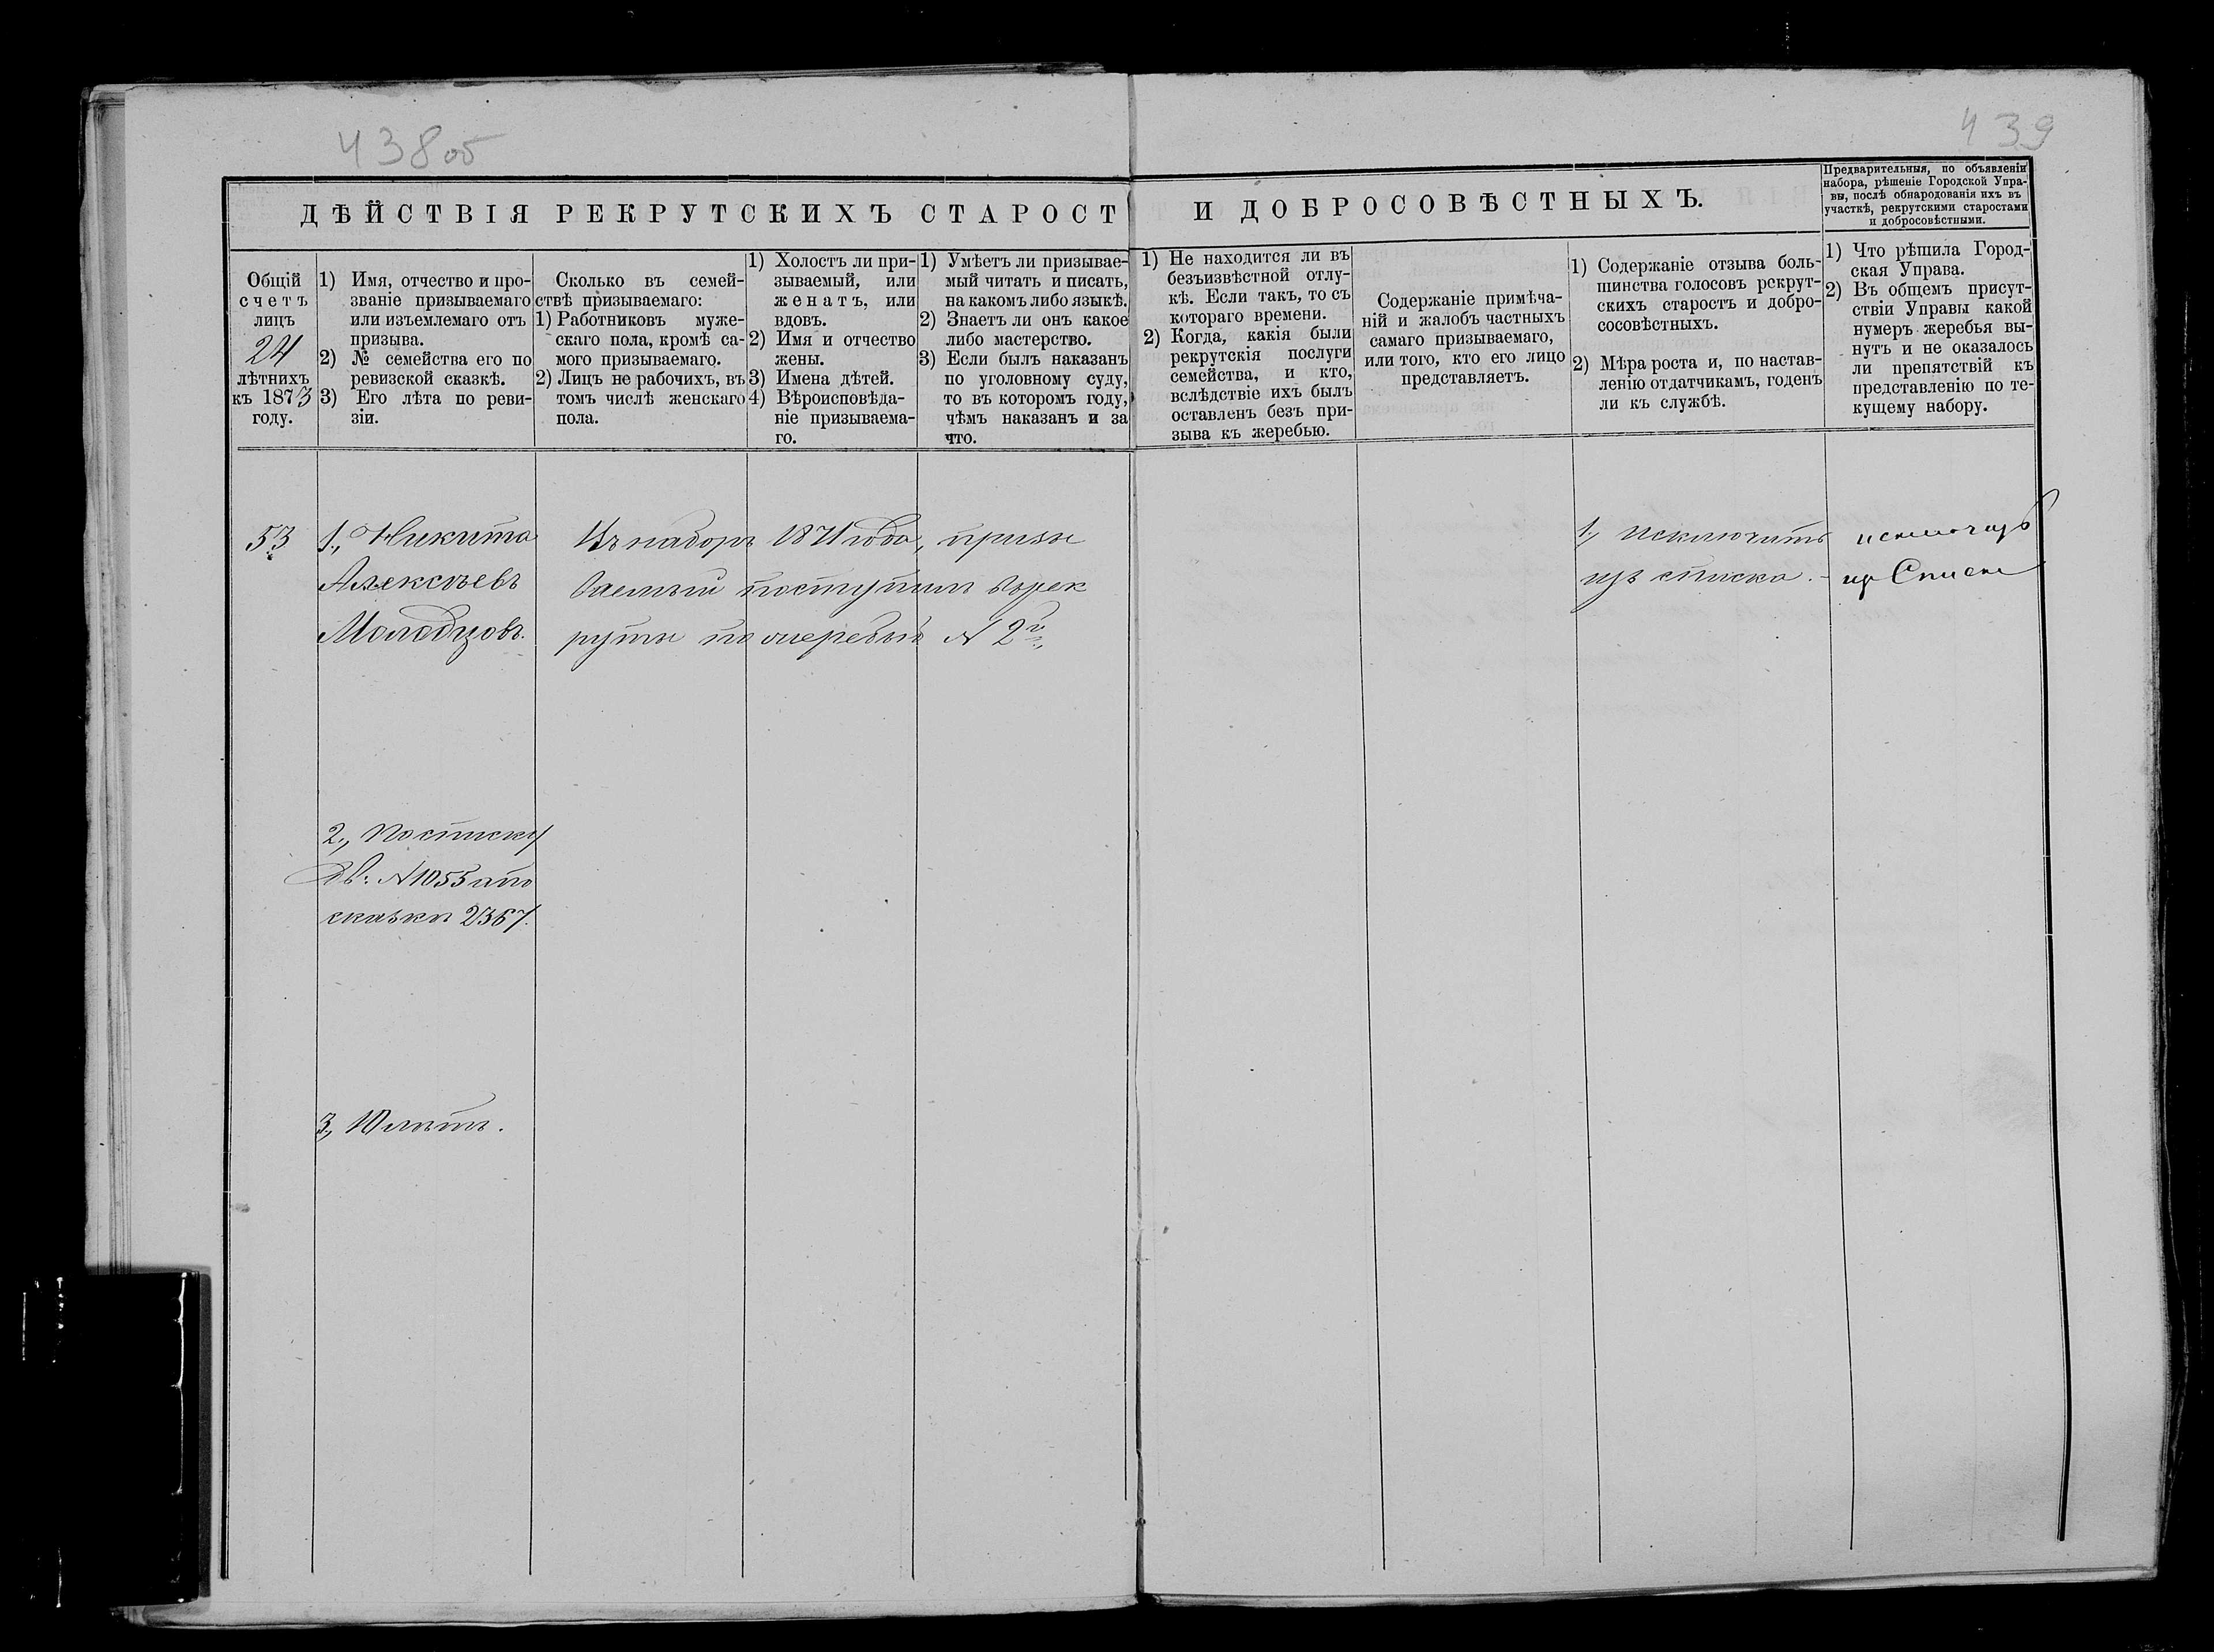 438 об
439
ДѢЙСТВІЯ РЕКРУТСКИХЪ СТАРОСТ
И ДОБРОСОВѢСТНЫХЪ.
Предварительныя, по объявленіи
набора, рѣшеніе Городской Упра-
вы, послѣ обнародованія ихъ въ
участкѣ, рекрутскими старостами
и добросовѣстными.
Общій
счетъ
лицъ
24
лѣтнихъ
къ 1873
году.
1) Имя, отчество и про-
званіе призываемаго
или изъемлемаго отъ
призыва.
2) № семейства его по
ревизской сказкѣ.
3) Его лѣта по реви-
зіи.
Сколько въ семей-
ствѣ призываемаго:
1) Работниковъ муже-
скаго пола, кромѣ са-
мого призываемаго.
2) Лицъ не рабочихъ, въ
томъ числѣ женскаго
пола.
1) Холостъ ли при-
зываемый, или
женатъ, или
вдовъ.
2) Имя и отчество
жены.
3) Имена дѣтей.
4) Вѣроисповѣда-
ніе призываема-
го.
1) Умѣетъ ли призывае-
мый читать и писать,
на какомъ либо языкѣ.
2) Знаетъ ли онъ какое
либо мастерство.
3) Если былъ наказанъ
по уголовному суду,
то въ которомъ году,
чѣмъ наказанъ и за
что.
1) Не находится ли въ
безъизвѣстной отлу-
кѣ. Если такъ, то съ
котораго времени.
2) Когда, какія были
рекрутскія послуги
семейства, и кто,
вслѣдствіе ихъ былъ
оставленъ безъ при-
зыва къ жеребью.
Содержаніе примѣча-
ній и жалобъ частныхъ
самаго призываемаго,
или того, кто его лицо
представляетъ.
1) Содержаніе отзыва боль-
шинства голосовъ рекрут-
скихъ старостъ и добро-
сосовѣстныхъ.
2) Мѣра роста и, по настав-
ленію отдатчикамъ, годенъ
ли къ службѣ.
1) Что рѣшила Город-
ская Управа.
2) Въ общемъ присут-
ствіи Управы какой
нумеръ жеребья вы-
нутъ и не оказалось
ли препятствій къ
представленію по те-
кущему набору.
53
1., Никита
Алексѣевъ
Молодцовъ.
2., По списку
дв: № 1055 а по
сказкѣ 2367.
3., 10 лѣтъ.
Въ наборъ 1871 года, призы
ваемый поступилъ въ рек
руты по очередн. № 2й.,
1., Исключить
изъ списка. -
исключить
из Списка